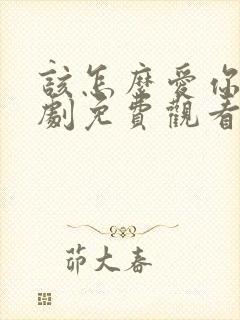 該怎麼愛你
劇免費觀看
茆大春